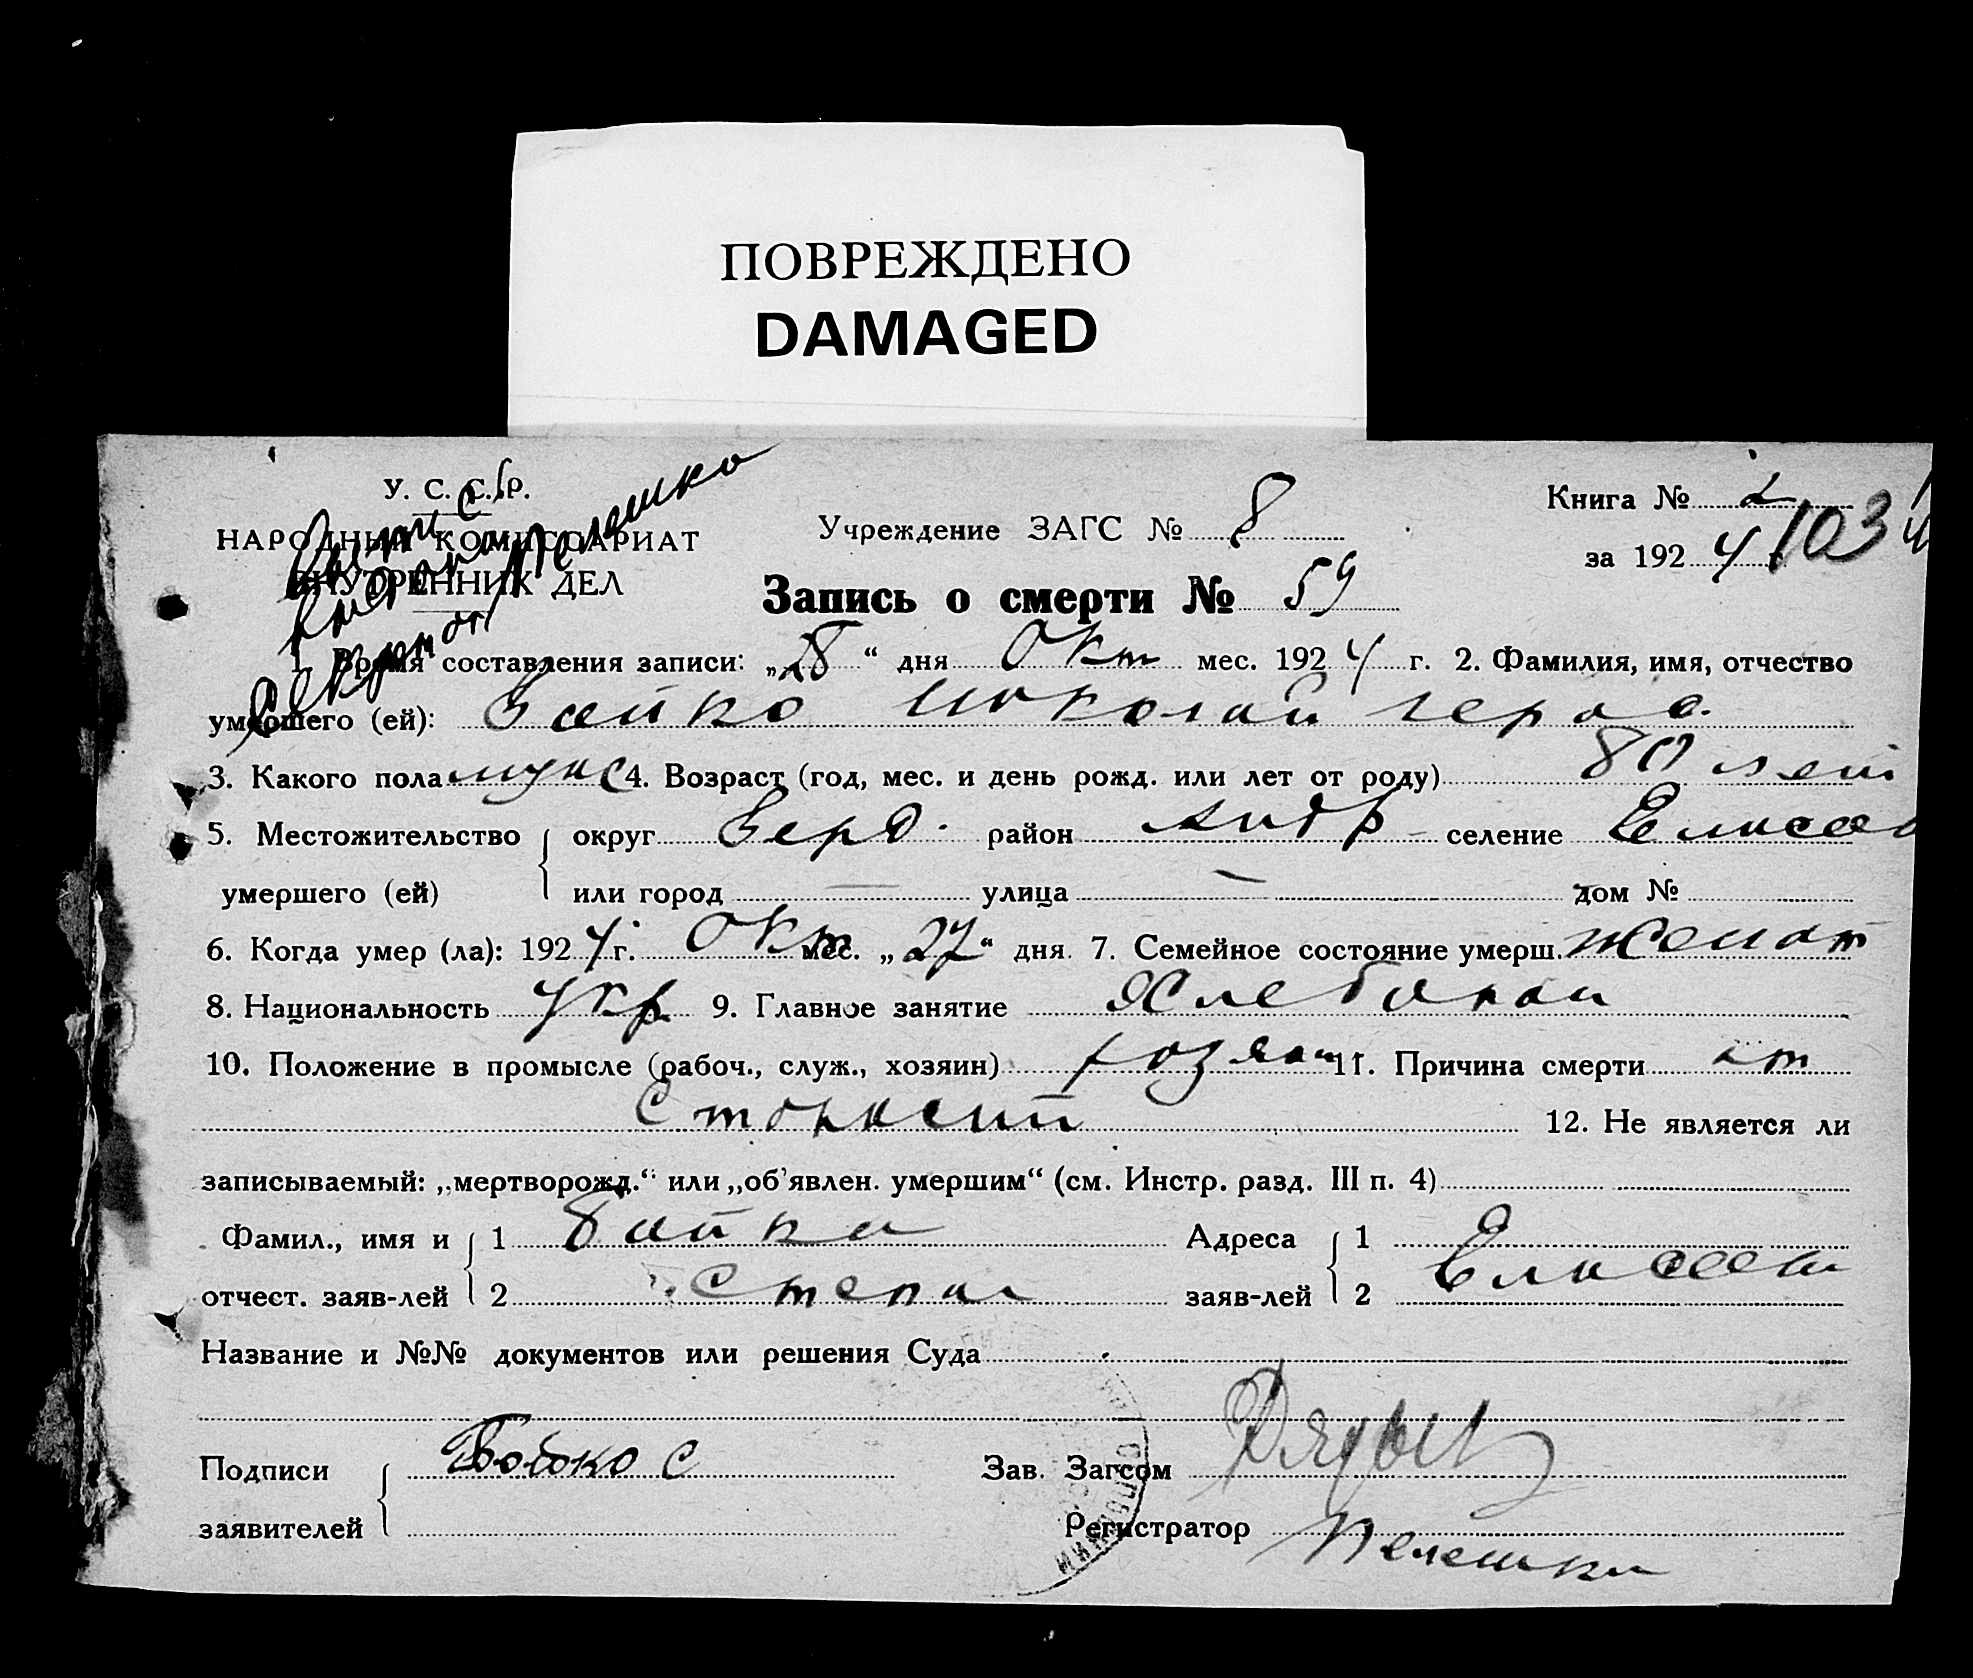 ПОВРЕЖДЕНО
DAMAGED
У. С. С. Р.
НАРОДНЫЙ КОМИССАРИАТ
ВНУТРЕННИХ ДЕЛ
Пелешко
Учреждение ЗАГС № 8
Книга № 2
за 1924
103
Запись о смерти № 59
1. Время составления записи: „28“ дня Окт мес. 1924 г. 2. Фамилия, имя, отчество
умершего (ей): Бойко Николай Герас.
3. Какого пола муж 4. Возраст (год, мес. и день рожд. или лет от роду) 80 лет
5. Местожительство округ Берд. район Андр селение Елисеев
умершего (ей) или город — улица — дом №
6. Когда умер (ла): 1924 г. Окт мес. „27“ дня. 7. Семейное состояние умерш. женат
8. Национальность укр 9. Главное занятие Хлебопаш
10. Положение в промысле (рабоч., служ., хозяин) хозяин 11. Причина смерти от
старости 12. Не является ли
записываемый: „мертворожд.“ или „об'явлен. умершим“ (см. Инстр. разд. III п. 4)
Фамил., имя и 1 Бойко Адреса 1
отчест. заяв-лей 2 Степан заяв-лей 2 Елисеев
Название и №№ документов или решения Суда
Подписи Бойко С Зав. Загсом
заявителей Регистратор Пелешко